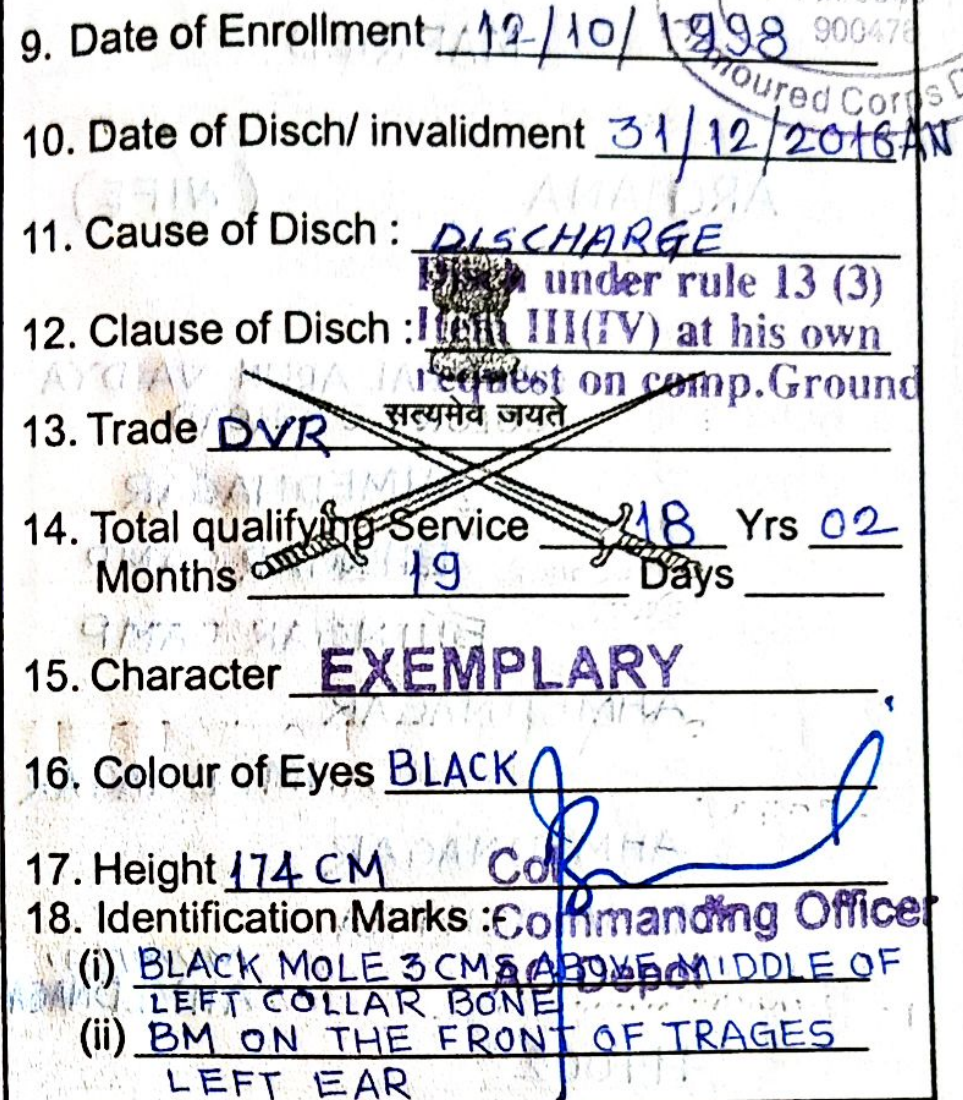 9. Date of Enrollment 12/10/1998
900476
moured Corps D
10. Date of Disch/ invalidment 31/12/2016AN
11. Cause of Disch : DISCHARGE
Disch under rule 13 (3)
12. Clause of Disch : Item III(IV) at his own
request on comp.Ground
सत्यमेव जयते
13. Trade DVR
14. Total qualifying Service 18 Yrs 02
Months 19 Days
15. Character EXEMPLARY
16. Colour of Eyes BLACK
17. Height 174 CM Col
18. Identification Marks : Commanding Officer
(i) BLACK MOLE 3 CMS ABOVE MIDDLE OF
AC Depot
LEFT COLLAR BONE
(ii) BM ON THE FRONT OF TRAGES
LEFT EAR